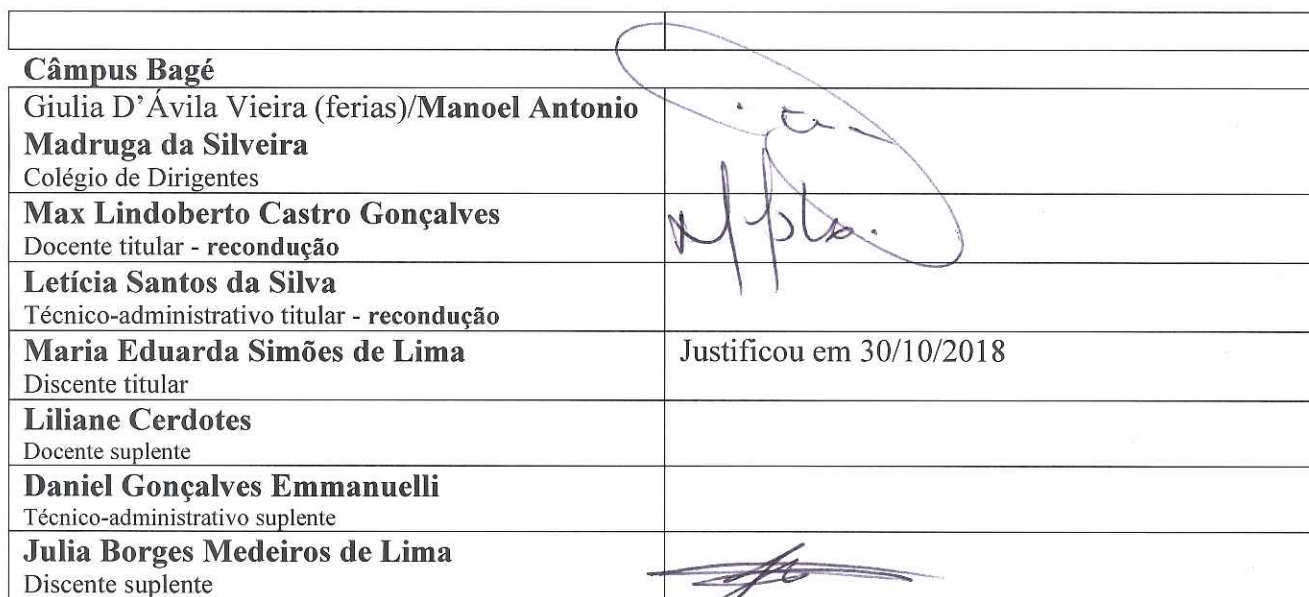 Câmpus Bagé
Giulia D’Ávila Vieira (ferias)/Manoel Antonio
Madruga da Silveira
Colégio de Dirigentes
Max Lindoberto Castro Gonçalves
Docente titular - recondução
Letícia Santos da Silva
Técnico-administrativo titular - recondução
Maria Eduarda Simões de Lima
Justificou em 30/10/2018
Discente titular
Liliane Cerdotes
Docente suplente
Daniel Gonçalves Emmanuelli
Técnico-administrativo suplente
Julia Borges Medeiros de Lima
Discente suplente